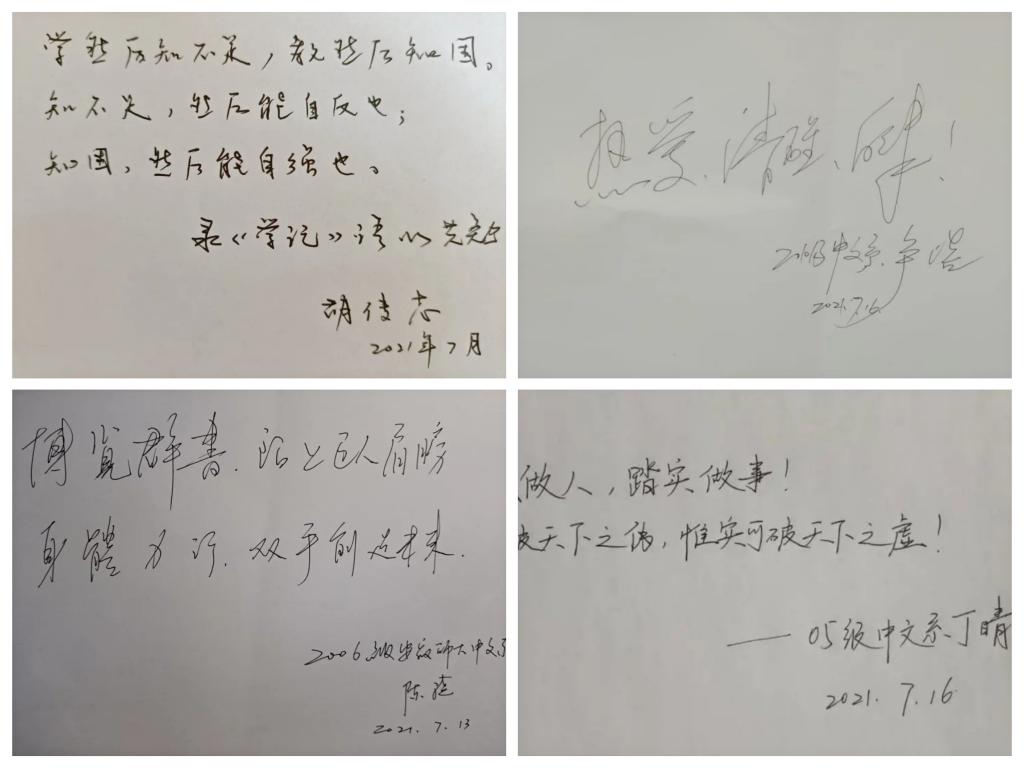 学然后知不足，教然后知困。
知不足，然后能自反也；
知困，然后能自强也。
录《学记》语以共勉
胡传志
2021年7月
热爱、清醒、
中文系
2021.7.16
博览群书，站上巨人肩膀
身體力行，双手创造未来.
2006级安徽师大中文系
陈
2021.7.13
做人，踏实做事！
破天下之伪，惟实可破天下之虚！
——05级中文系丁晴
2021.7.16